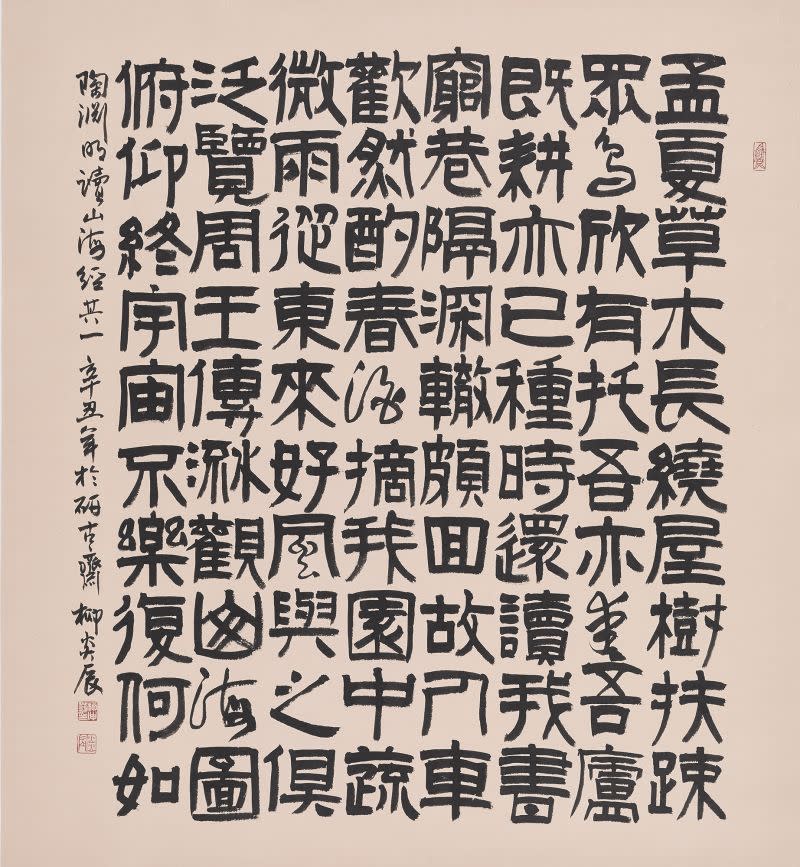 孟夏草木長繞屋樹扶踈
眾鳥欣有托吾亦愛吾廬
既耕亦已種時還讀我書
窮巷隔深轍頗回故人車
歡然酌春酒摘我園中蔬
微雨從東來好風與之俱
泛覽周王傳流觀山海圖
俯仰終宇宙不樂復何如
陶淵明讀山海經其一 辛丑年於古齋 柳炎辰